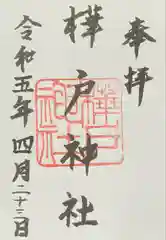 奉拝
樺戸神社
令和五年四月二十三日